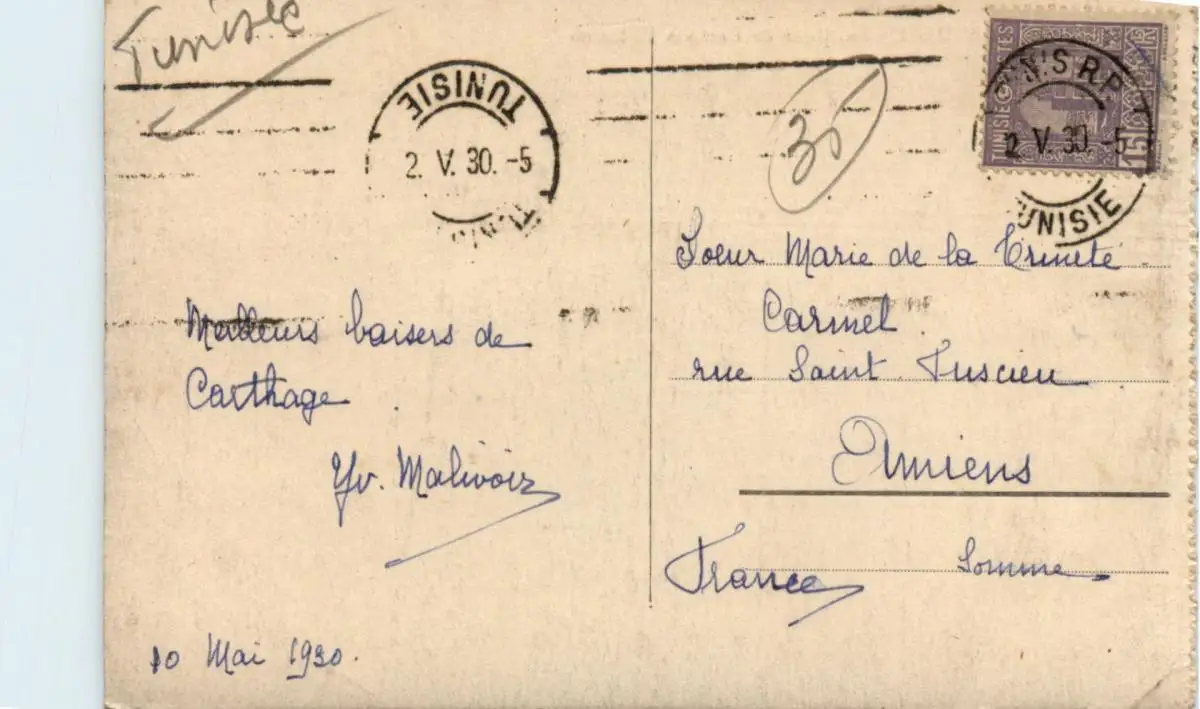 Tunisie
TUNISIE
2. V. 30. -5
TUNIS R.P.
2 V. 30. -5
TUNISIE
TUNISIE
POSTES
15
30
Soeur Marie de la Trinité
Carmel
rue Saint Fuscien
Amiens
Somme
France
Meilleurs baisers de
Carthage
Yv. Malivoir
10 Mai 1930.